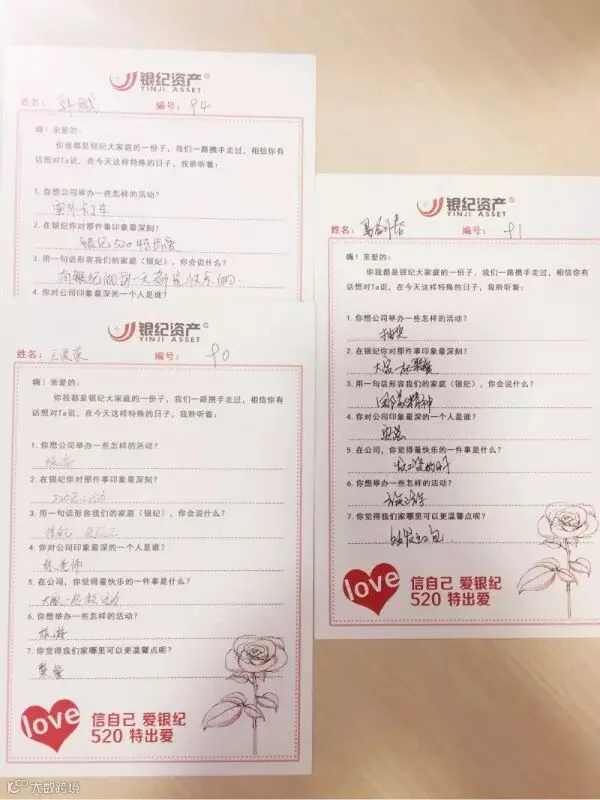 银纪资产
YINJI ASSET
姓名： 编号： 94
嗨！亲爱的：
你我都是银纪大家庭的一份子，我们一路携手走过，相信你有
话想对Ta说，在今天这样特殊的日子，我聆听着：
1. 你想公司举办一些怎样的活动？
室外
2. 在银纪你对那件事印象最深刻？
银纪520特出爱
3. 用一句话形容我们的家庭（银纪），你会说什么？
在银纪的每一天都是快乐的
4. 你对公司印象最深的一个人是谁？
银纪资产
YINJI ASSET
姓名： 编号： 90
嗨！亲爱的：
你我都是银纪大家庭的一份子，我们一路携手走过，相信你有
话想对Ta说，在今天这样特殊的日子，我聆听着：
1. 你想公司举办一些怎样的活动？
旅游
2. 在银纪你对那件事印象最深刻？
520 活动
3. 用一句话形容我们的家庭（银纪），你会说什么？
4. 你对公司印象最深的一个人是谁？
张老师
5. 在公司，你觉得最快乐的一件事是什么？
大家一起做活动
6. 你想举办一些怎样的活动？
旅游
7. 你觉得我们家哪里可以更温馨点呢？
聚餐
love 信自己 爱银纪
520 特出爱
银纪资产
YINJI ASSET
姓名： 编号： 91
嗨！亲爱的：
你我都是银纪大家庭的一份子，我们一路携手走过，相信你有
话想对Ta说，在今天这样特殊的日子，我聆听着：
1. 你想公司举办一些怎样的活动？
抽奖
2. 在银纪你对那件事印象最深刻？
大家一起聚餐
3. 用一句话形容我们的家庭（银纪），你会说什么？
团队精神
4. 你对公司印象最深的一个人是谁？
5. 在公司，你觉得最快乐的一件事是什么？
发工资的时
6. 你想举办一些怎样的活动？
7. 你觉得我们家哪里可以更温馨点呢？
发红包
love 信自己 爱银纪
520 特出爱
大数跨境